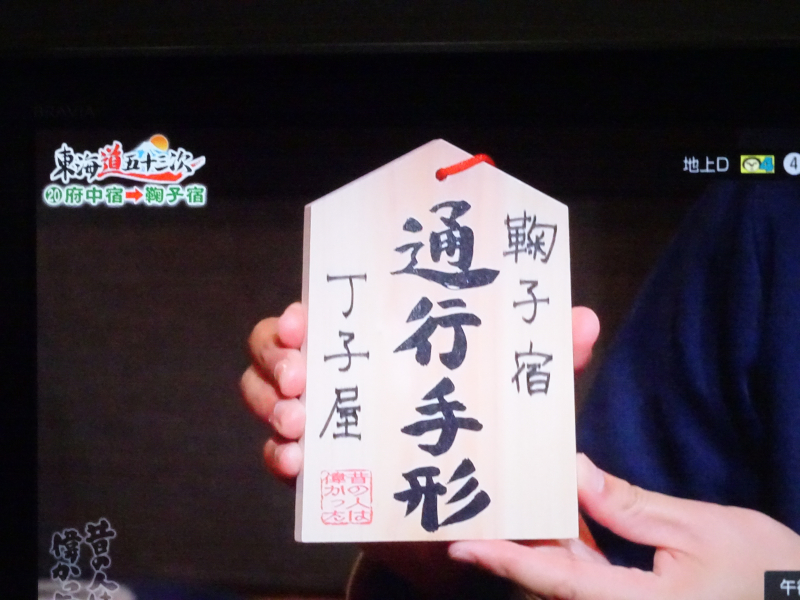 BRAVIA
東海道五十三次
⑳府中宿➡鞠子宿
地上D
4
鞠子宿
通行手形
丁子屋
昔の人は
偉かった
昔の人は
偉かった